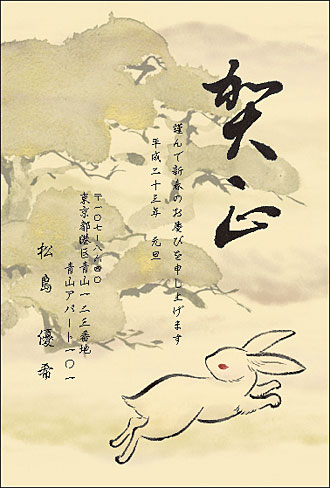 賀正
謹んで新春のお慶びを申し上げます
平成二十三年 元旦
〒一〇七-八六四〇
東京都港区青山一-二三番地
青山アパート一〇一
松島優希